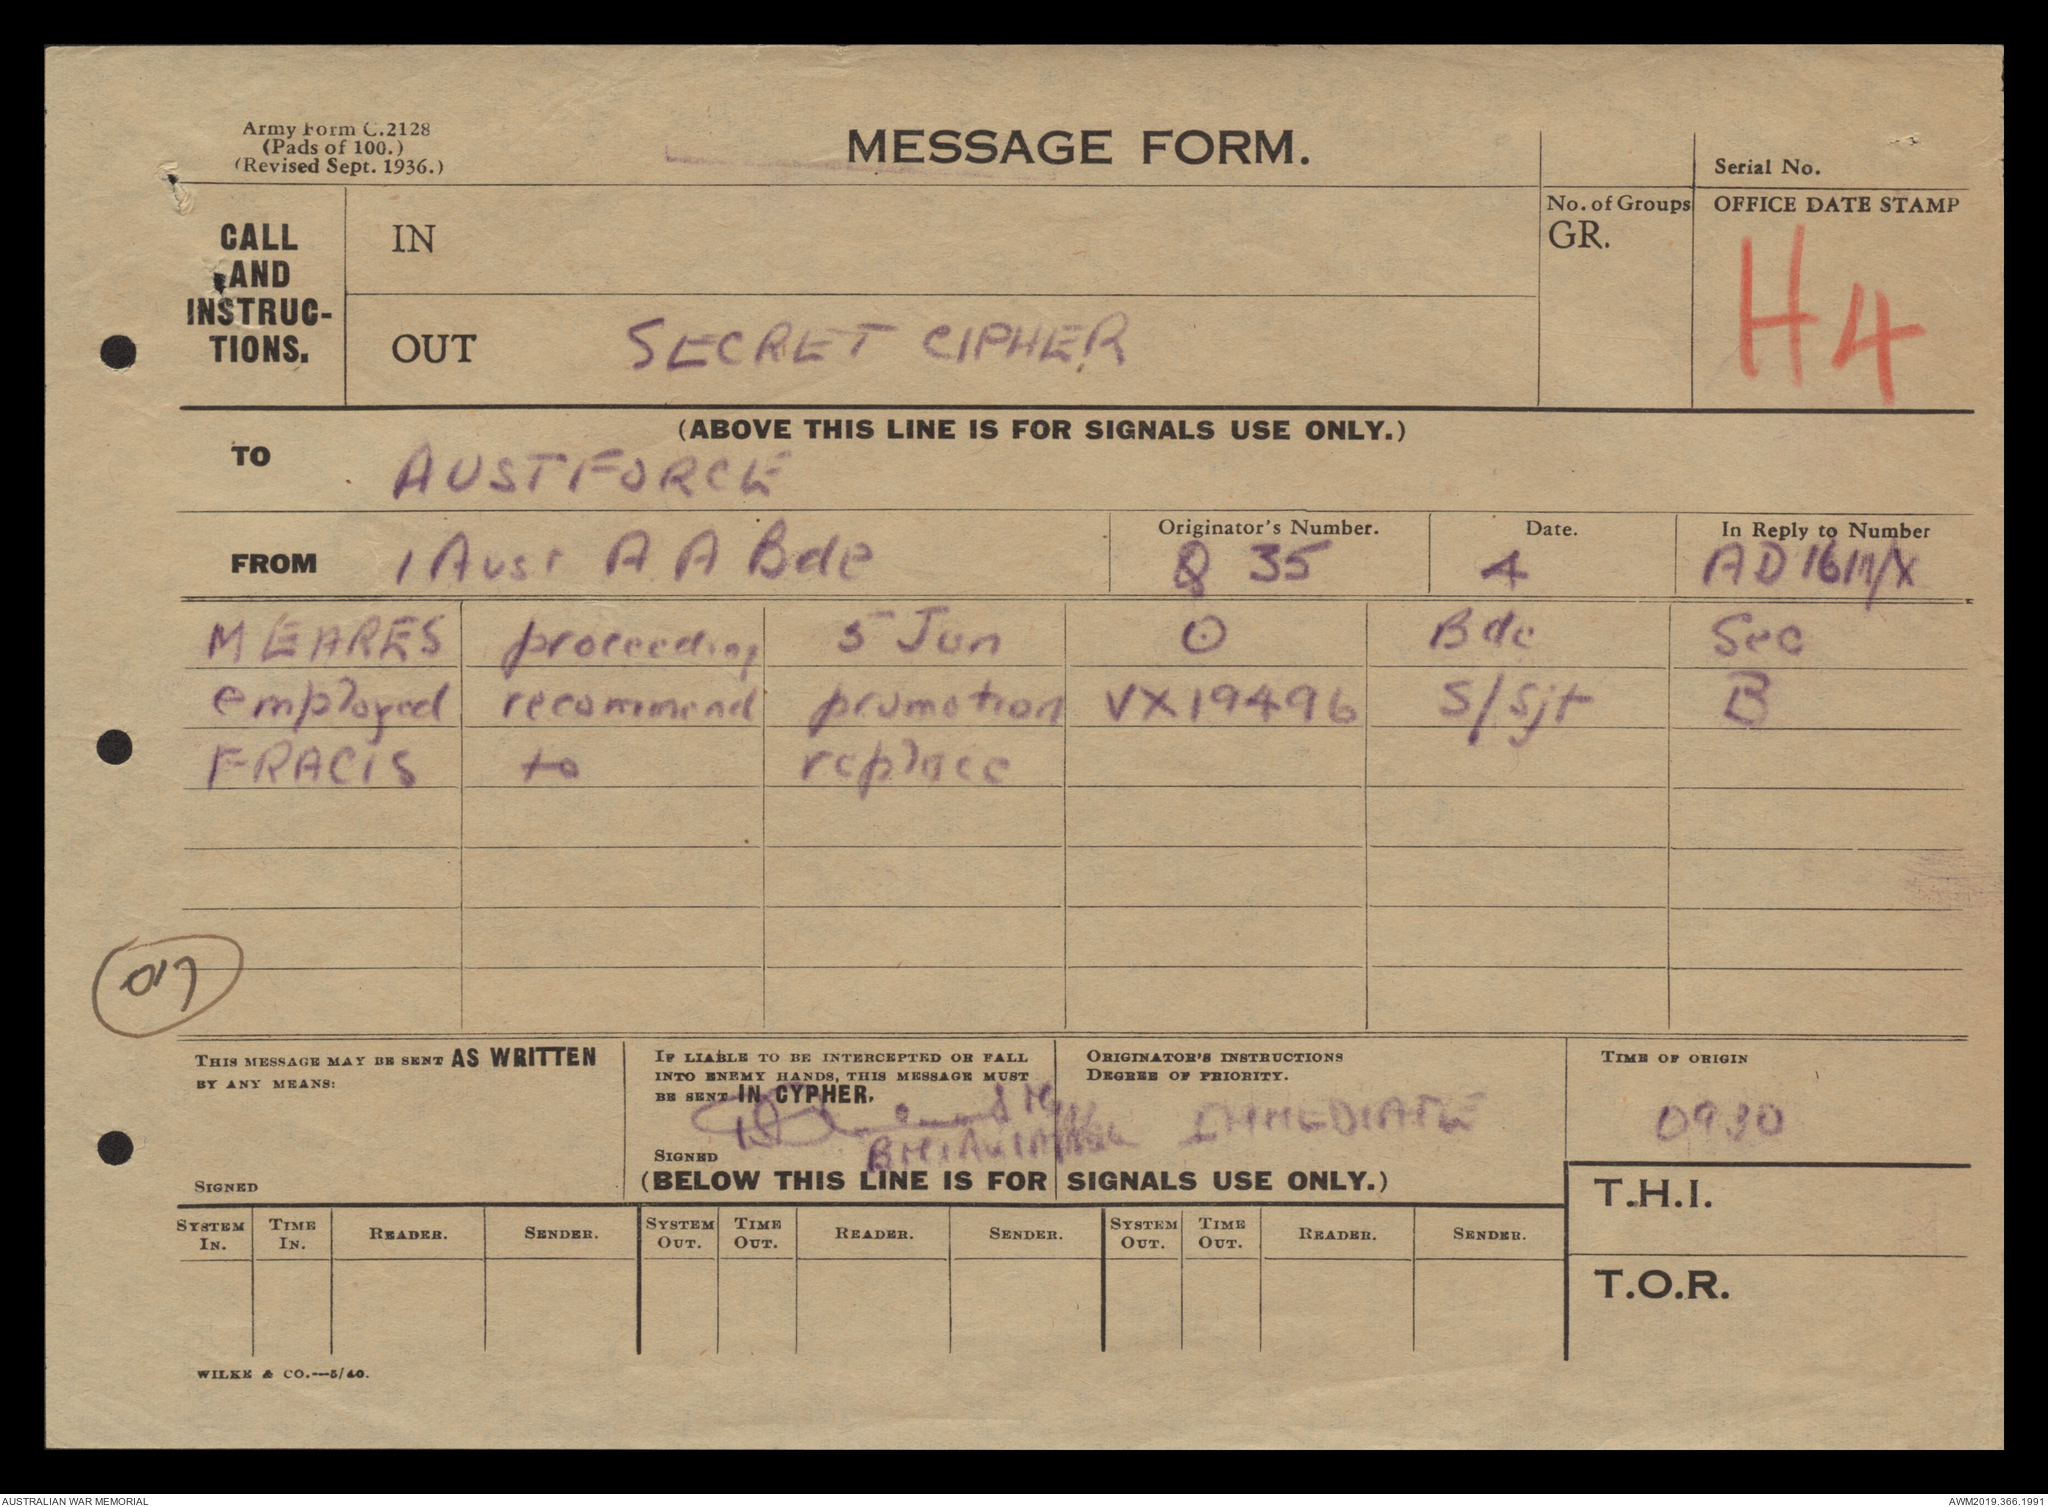 Army Form C.2128
(Pads of 100.)
(Revised Sept. 1936.)
MESSAGE FORM.
Serial No.
CALL
AND
INSTRUC-
TIONS.
IN
No. of Groups
GR.
OFFICE DATE STAMP
H4
OUT SECRET CIPHER
(ABOVE THIS LINE IS FOR SIGNALS USE ONLY.)
TO AUSTFORCE
FROM 1 Aust A A Bde
Originator's Number.
Q 35
Date.
4
In Reply to Number
MEARES proceeding 5 Jun ⊙ Bde Sec
employed recommend promotion VX19496 S/Sjt B
FRACIS to replace
THIS MESSAGE MAY BE SENT AS WRITTEN
BY ANY MEANS:
SIGNED
IF LIABLE TO BE INTERCEPTED OR FALL
INTO ENEMY HANDS, THIS MESSAGE MUST
BE SENT IN CYPHER.
SIGNED
ORIGINATOR'S INSTRUCTIONS
DEGREE OF PRIORITY.
IMMEDIATE
TIME OF ORIGIN
0930
(BELOW THIS LINE IS FOR SIGNALS USE ONLY.)
T.H.I.
SYSTEM IN. TIME IN. READER. SENDER. SYSTEM OUT. TIME OUT. READER. SENDER. SYSTEM OUT. TIME OUT. READER. SENDER.
T.O.R.
WILKE & CO.—5/40.
AUSTRALIAN WAR MEMORIAL
AWM2019.366.1991